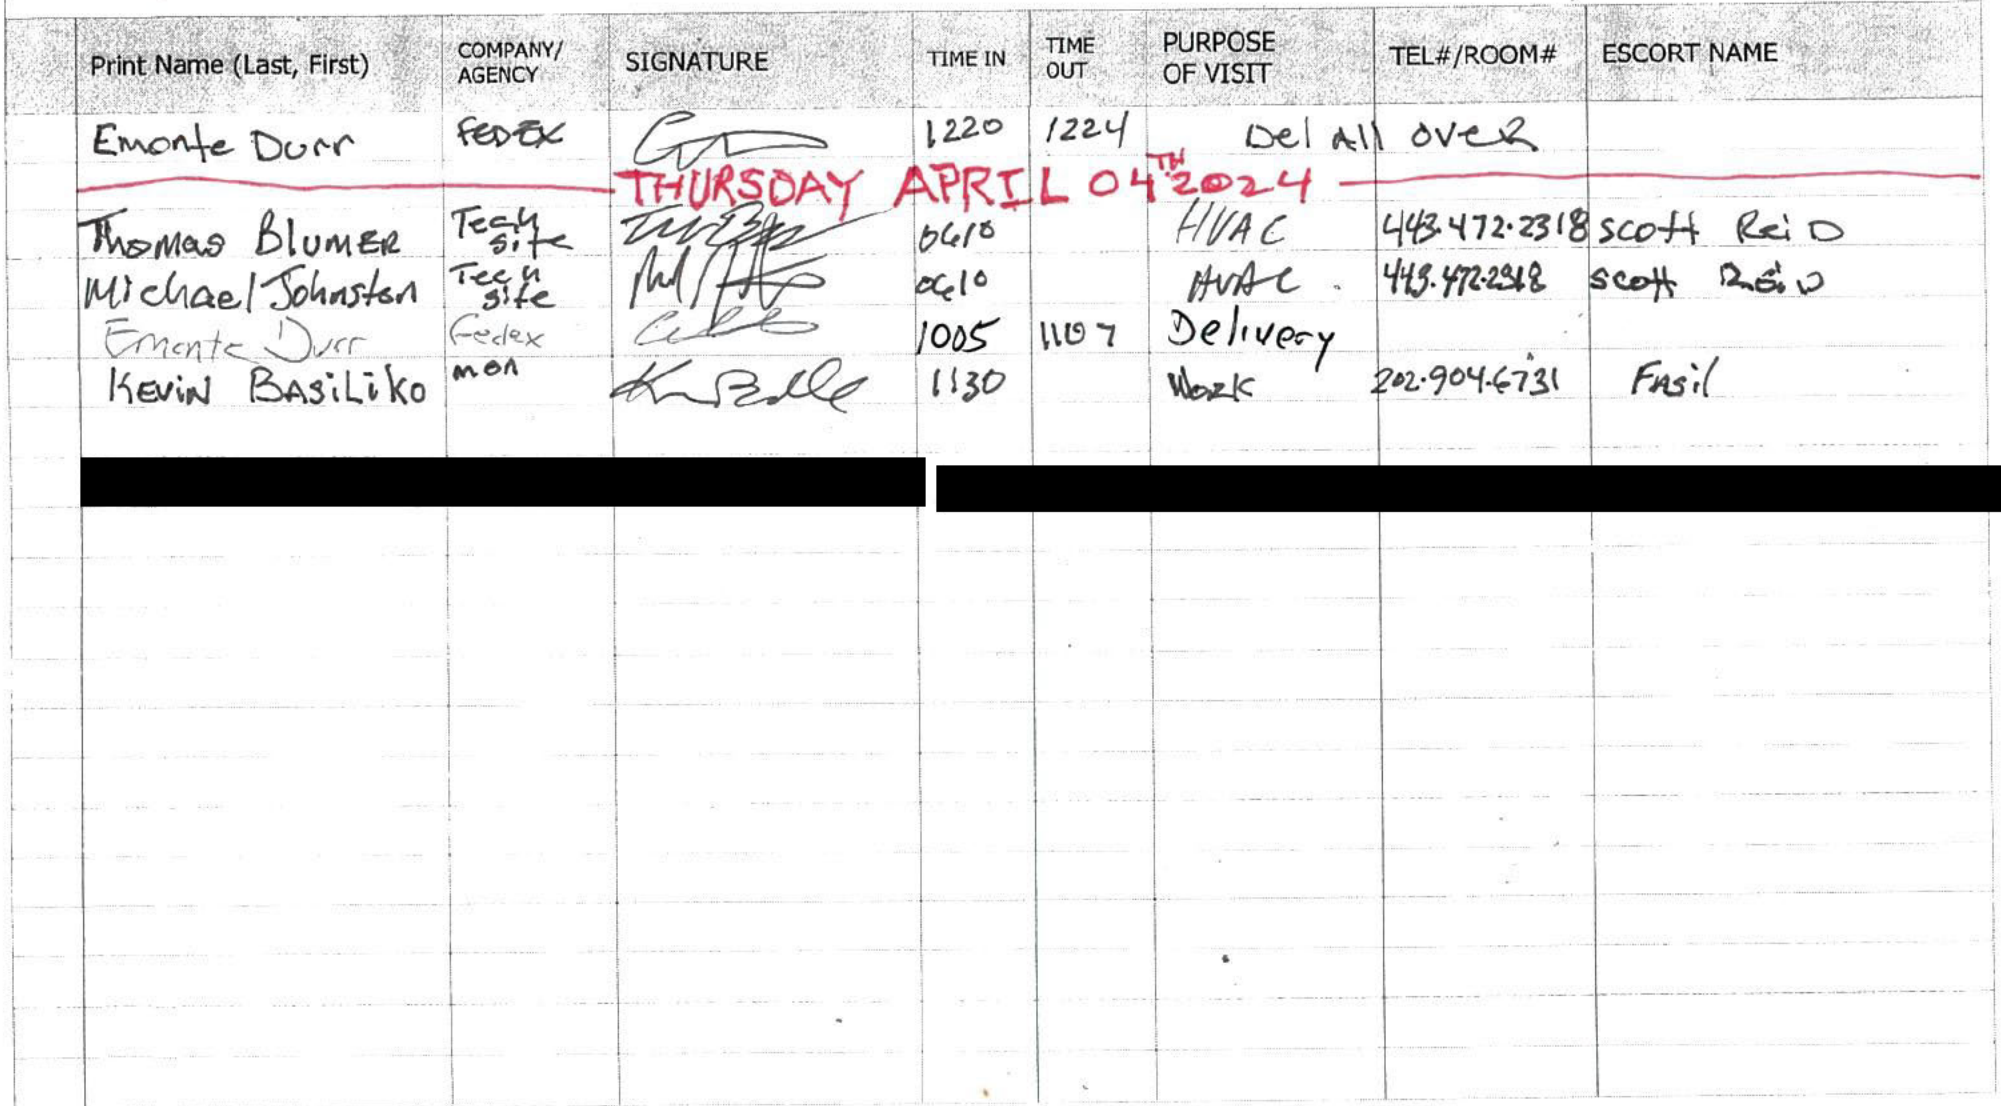 Print Name (Last, First) COMPANY/ AGENCY SIGNATURE TIME IN TIME OUT PURPOSE OF VISIT TEL#/ROOM# ESCORT NAME
Emonte Durr FEDEX 1220 1224 Del All over
THURSDAY APRIL 04TH 2024
Thomas Blumer Tech site 0610 HVAC 443.472.2318 Scott Reid
Michael Johnston Tech site 0610 HVAC 443.472.2318 Scott Reid
Emonte Durr Fedex 1005 1107 Delivery
Kevin Basiliko mon 1130 Work 202.904.6731 Fasil